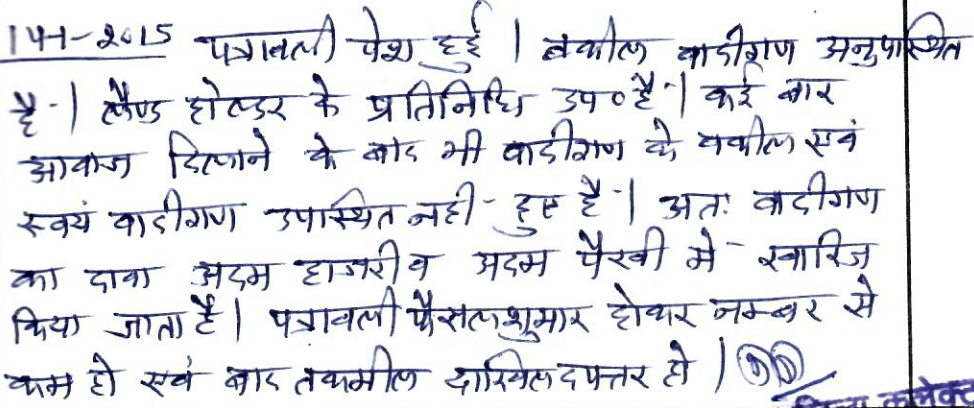 14-1-2015 पत्रावली पेश हुई | वकील वादीगण अनुपस्थित
है | लैण्ड होल्डर के प्रतिनिधि उप० है | कई बार
आवाज दिलाने के बाद भी वादीगण के वकील एवं
स्वयं वादीगण उपस्थित नही हुए है | अतः वादीगण
का दावा अदम हाजरी व अदम पैरवी मे खारिज
किया जाता है | पत्रावली फैसलशुमार होकर नम्बर से
कम हो एवं बाद तकमील दाखिल दफ्तर हो |
कलेक्ट